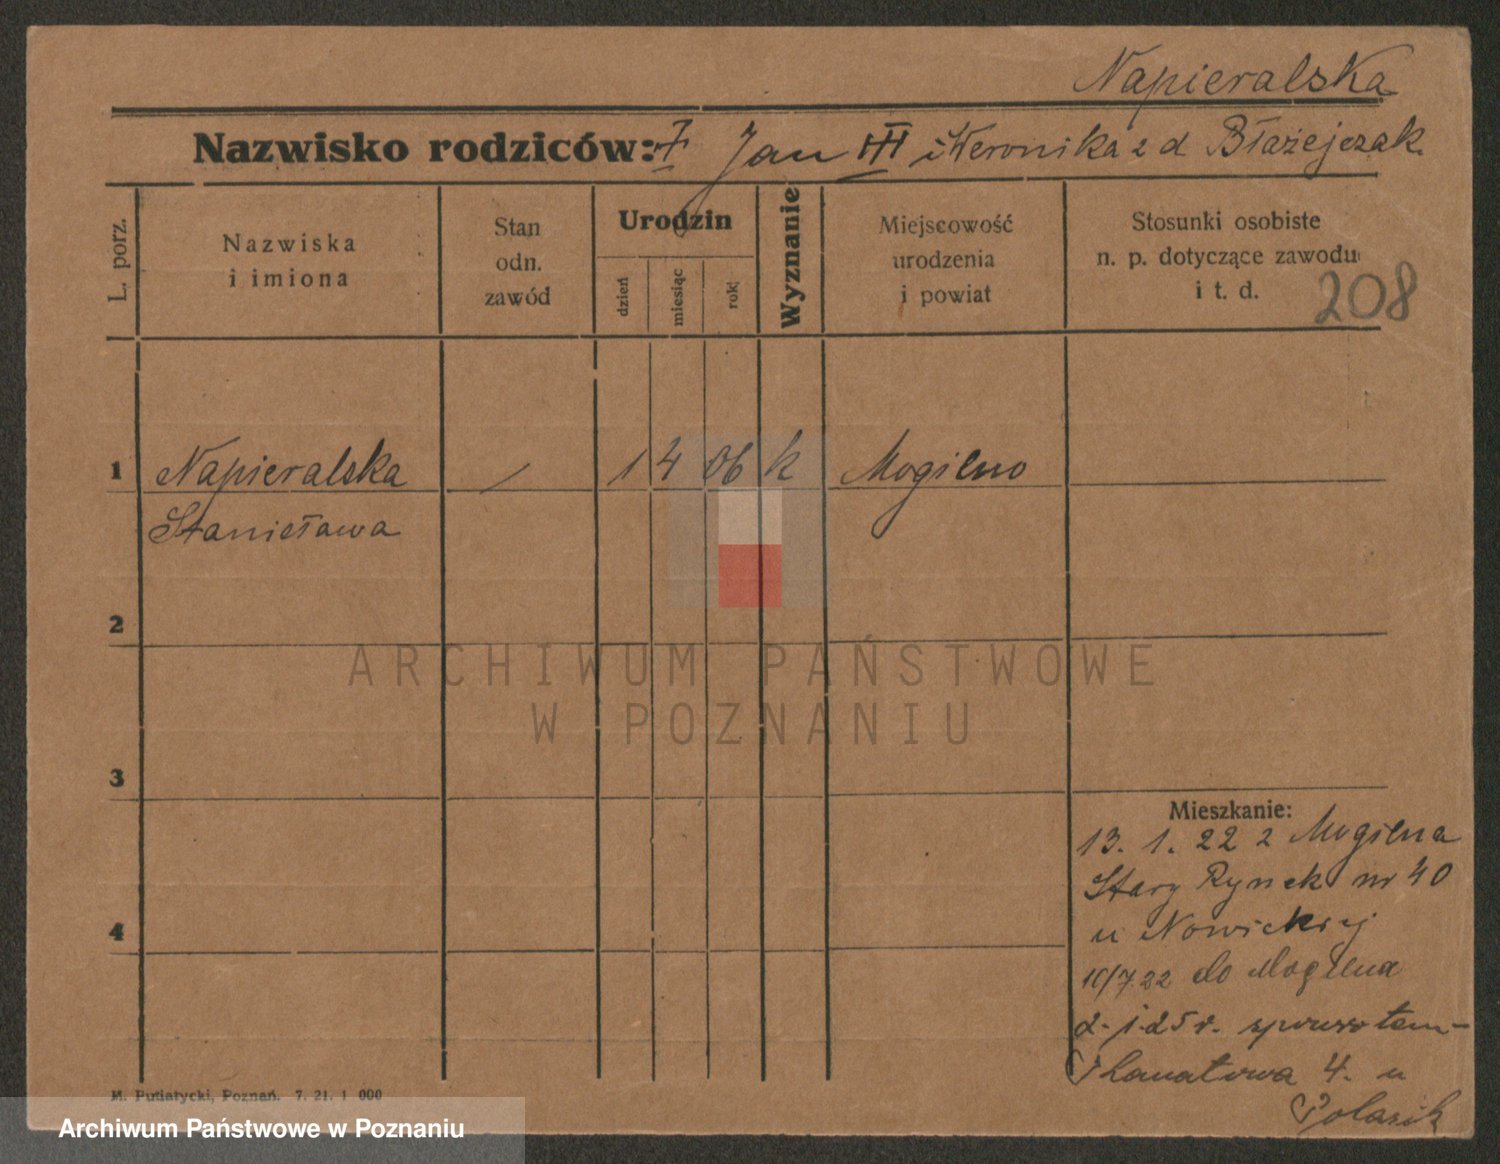 Napieralska
Nazwisko rodziców: Jan i Weronika z d Błażejczak
L. porz.
Nazwiska
i imiona
Stan
odn.
zawód
Urodzin
dzień
miesiąc
rok
Wyznanie
Miejscowość
urodzenia
i powiat
Stosunki osobiste
n. p. dotyczące zawodu
i t. d.
208
1 Napieralska / 1 4 06 k Mogilno
Stanisława
2
ARCHIWUM PAŃSTWOWE
W POZNANIU
3
Mieszkanie:
13. 1. 22 z Mogilna
Stary Rynek nr 40
u Nowickiej
4
10/7.22 do Mogilna
2. 1. 25 r. tam-
4. u
M. Putiatycki, Poznań. 7. 21. 1 000
Archiwum Państwowe w Poznaniu